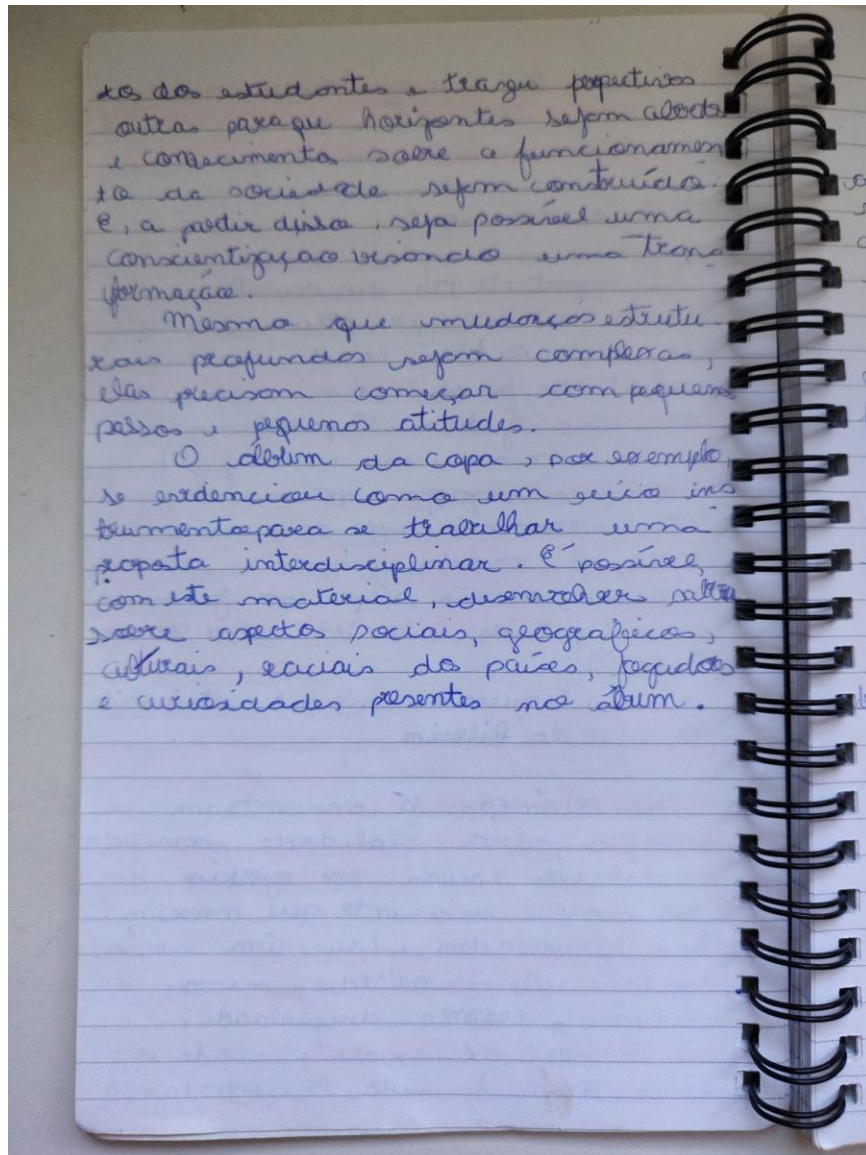 tos dos estudantes e trazer perpectivas
outras para que horizontes sejam abertos
e conhecimentos sobre o funcionamen
to da sociedade sejam construídos.
E, a partir disso, seja possível uma
conscientização visando uma trans
formação.
Mesmo que mudanças estrutu
rais profundas sejam complexas,
elas precisam começar com pequenos
passos e pequenas atitudes.
O álbum da copa, por exemplo,
se evidenciou como um rico ins
trumento para se trabalhar uma
proposta interdisciplinar. É possível,
com este material, desenvolver
sobre aspectos sociais, geográficos,
culturais, raciais do países, jogadores
e curiosidades presentes no álbum.